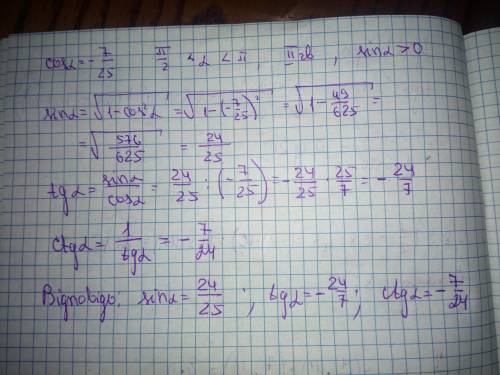 cosα = -7/25   π/2 < α < π, II чв, sinα > 0
sinα = √(1-cos²α) = √(1-(-7/25)²) = √(1-49/625) =
= √(576/625) = 24/25
tgα = sinα/cosα = 24/25 : (-7/25) = -24/25 · 25/7 = -24/7
ctgα = 1/tgα = -7/24
Відповідь: sinα = 24/25 ; tgα = -24/7 ; ctgα = -7/24